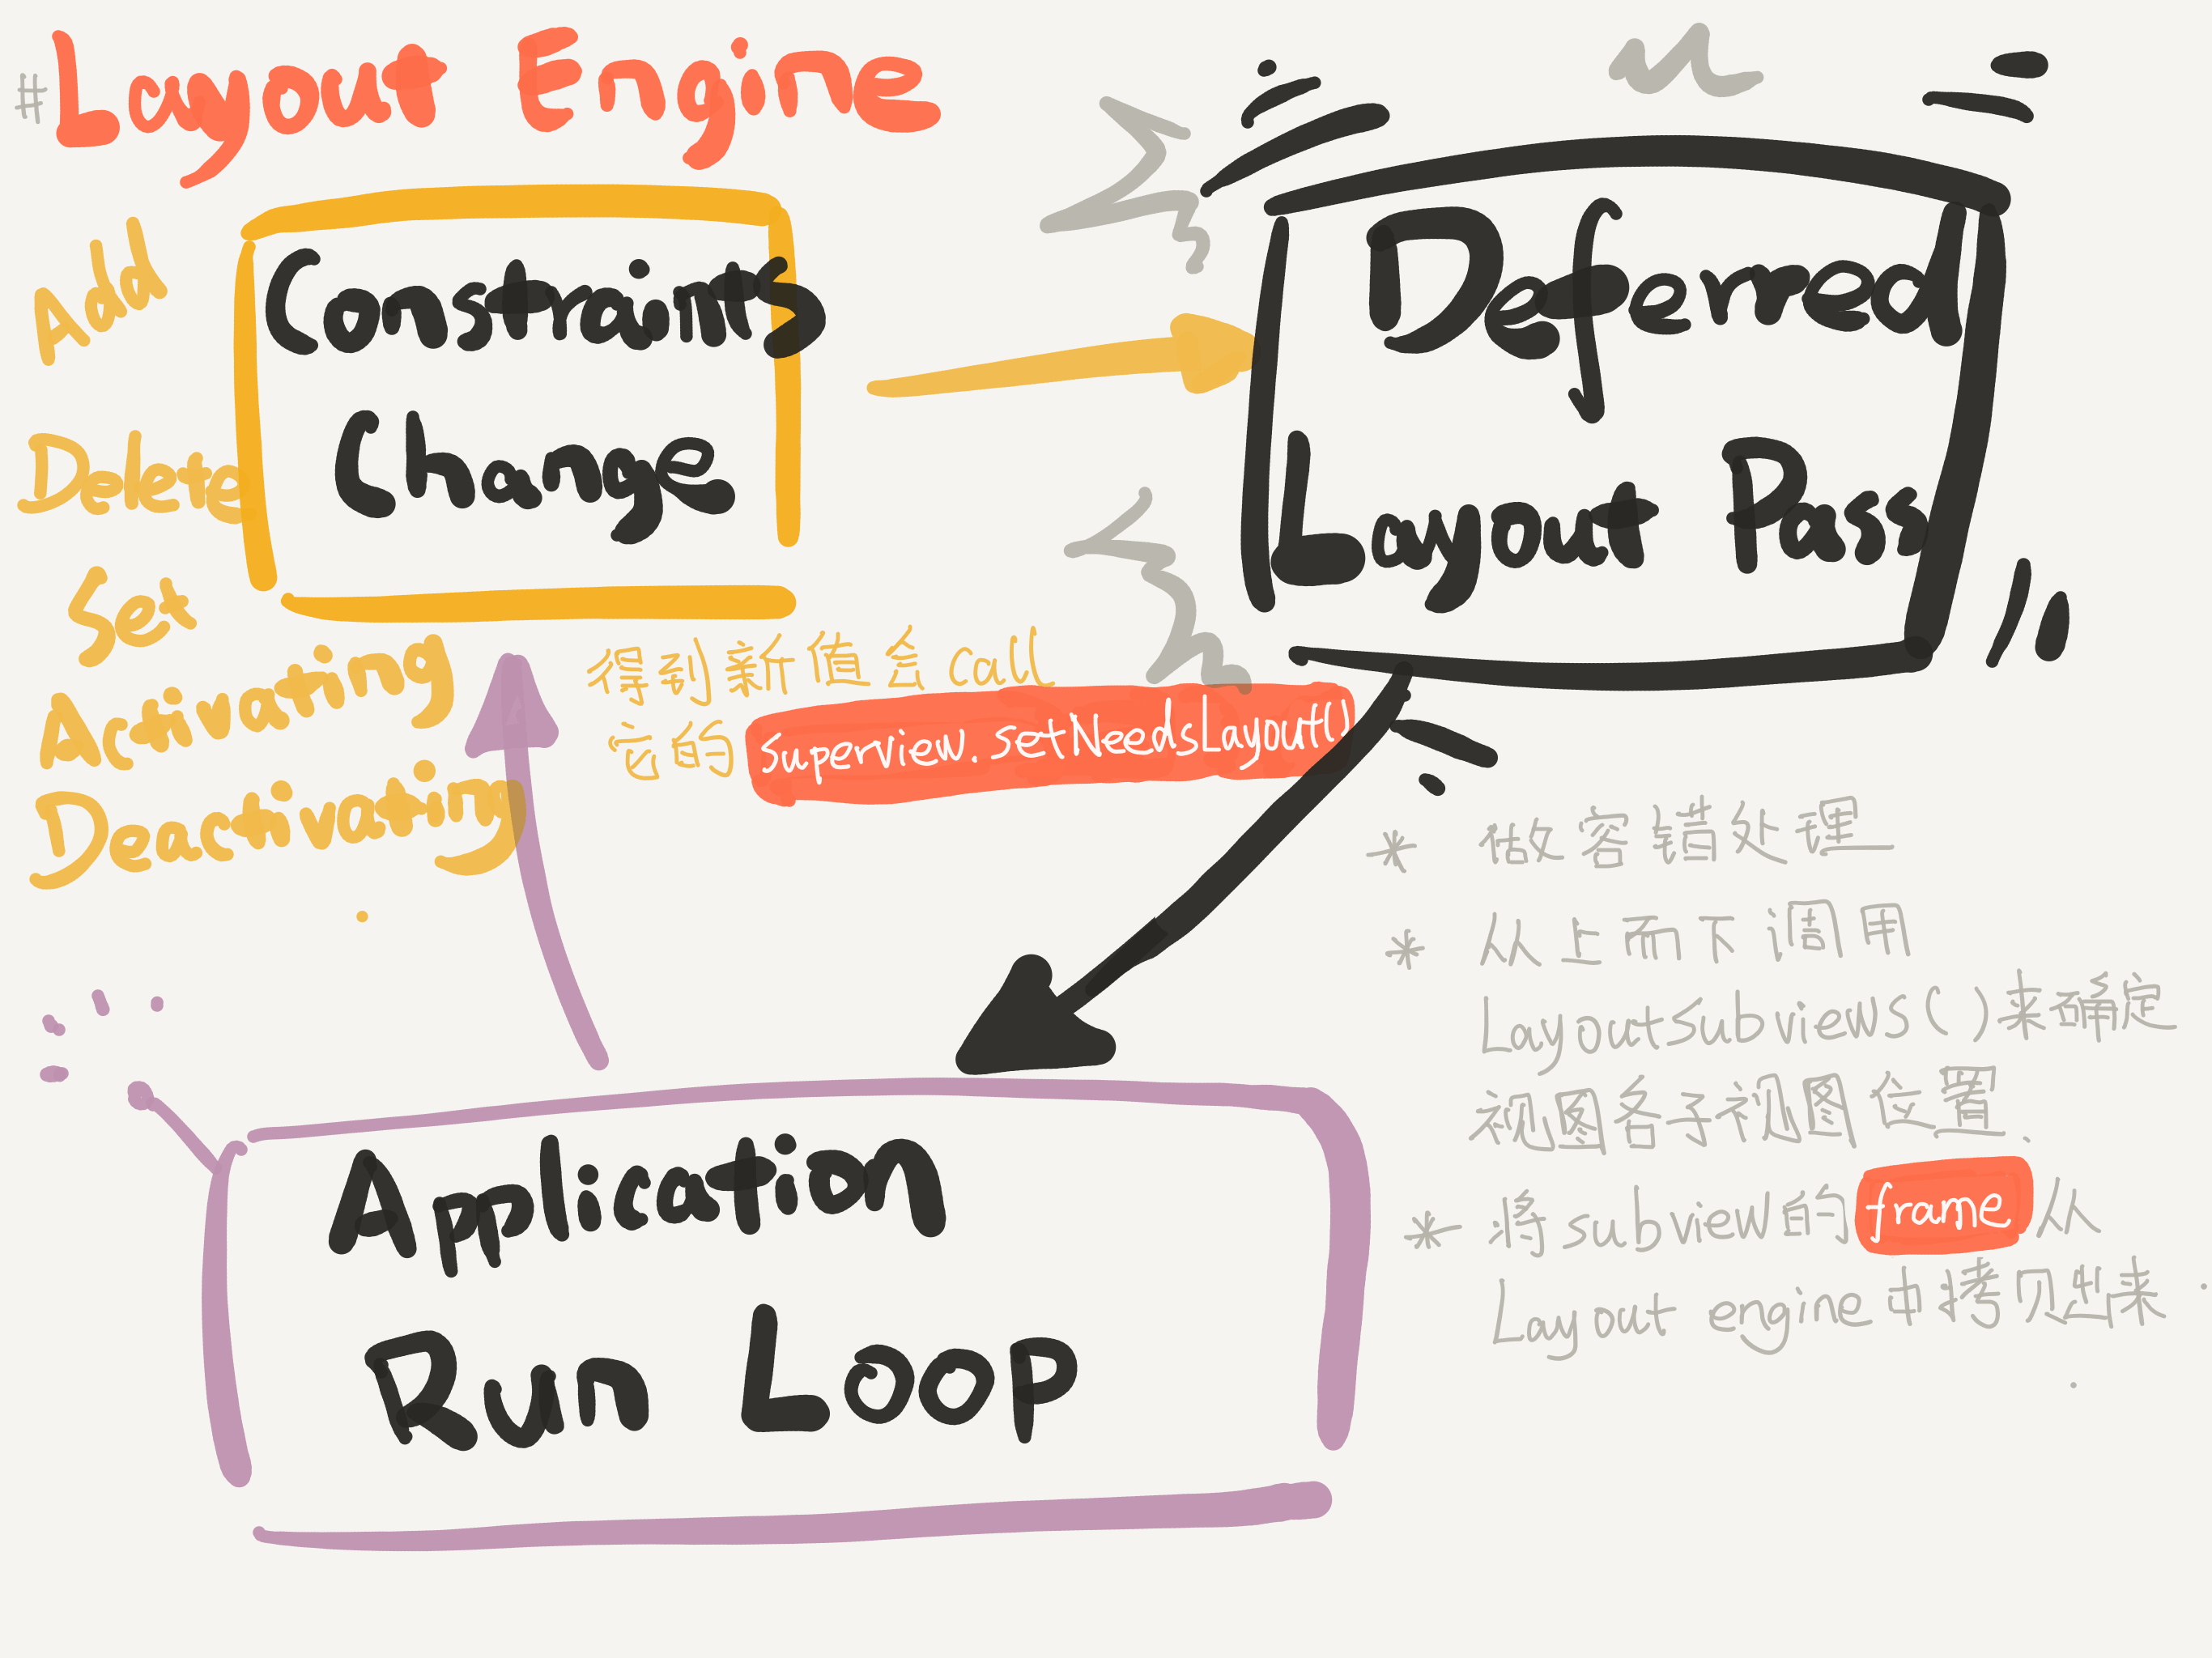 # Layout Engine
Add
Delete
Set
Activating
Deactivating
Constraints
Change
Deferred
Layout Pass
得到新值会call
它的 superview.setNeedsLayout()
* 做容错处理
* 从上而下调用
LayoutSubviews()来确定
视图各子视图位置.
* 将subview的 frame 从
Layout engine中拷贝出来.
Application
Run Loop